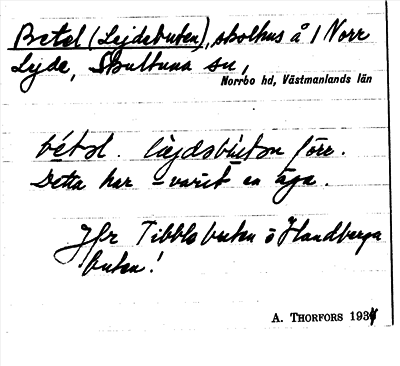 Betel (Lejdabuten), skolhus å 1 Norr
Lejda, Skultuna sn,
Norrbo hd, Västmanlands län
bétəl. lèjdabùtən förr.
Detta har varit en äga.
Jfr Tibble buten o Handberga
buten!
A. THORFORS 1934